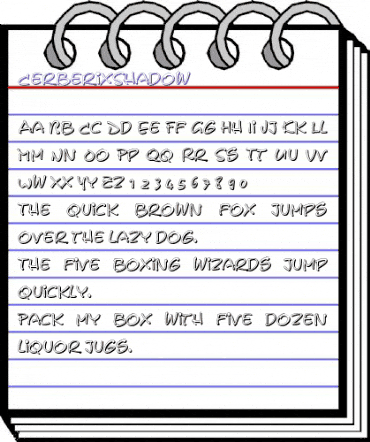 CERBERIXSHADOW
AA BB CC DD EE FF GG HH II JJ KK LL
MM NN OO PP QQ RR SS TT UU VV
WW XX YY ZZ 1 2 3 4 5 6 7 8 9 0
THE QUICK BROWN FOX JUMPS
OVER THE LAZY DOG.
THE FIVE BOXING WIZARDS JUMP
QUICKLY.
PACK MY BOX WITH FIVE DOZEN
LIQUOR JUGS.